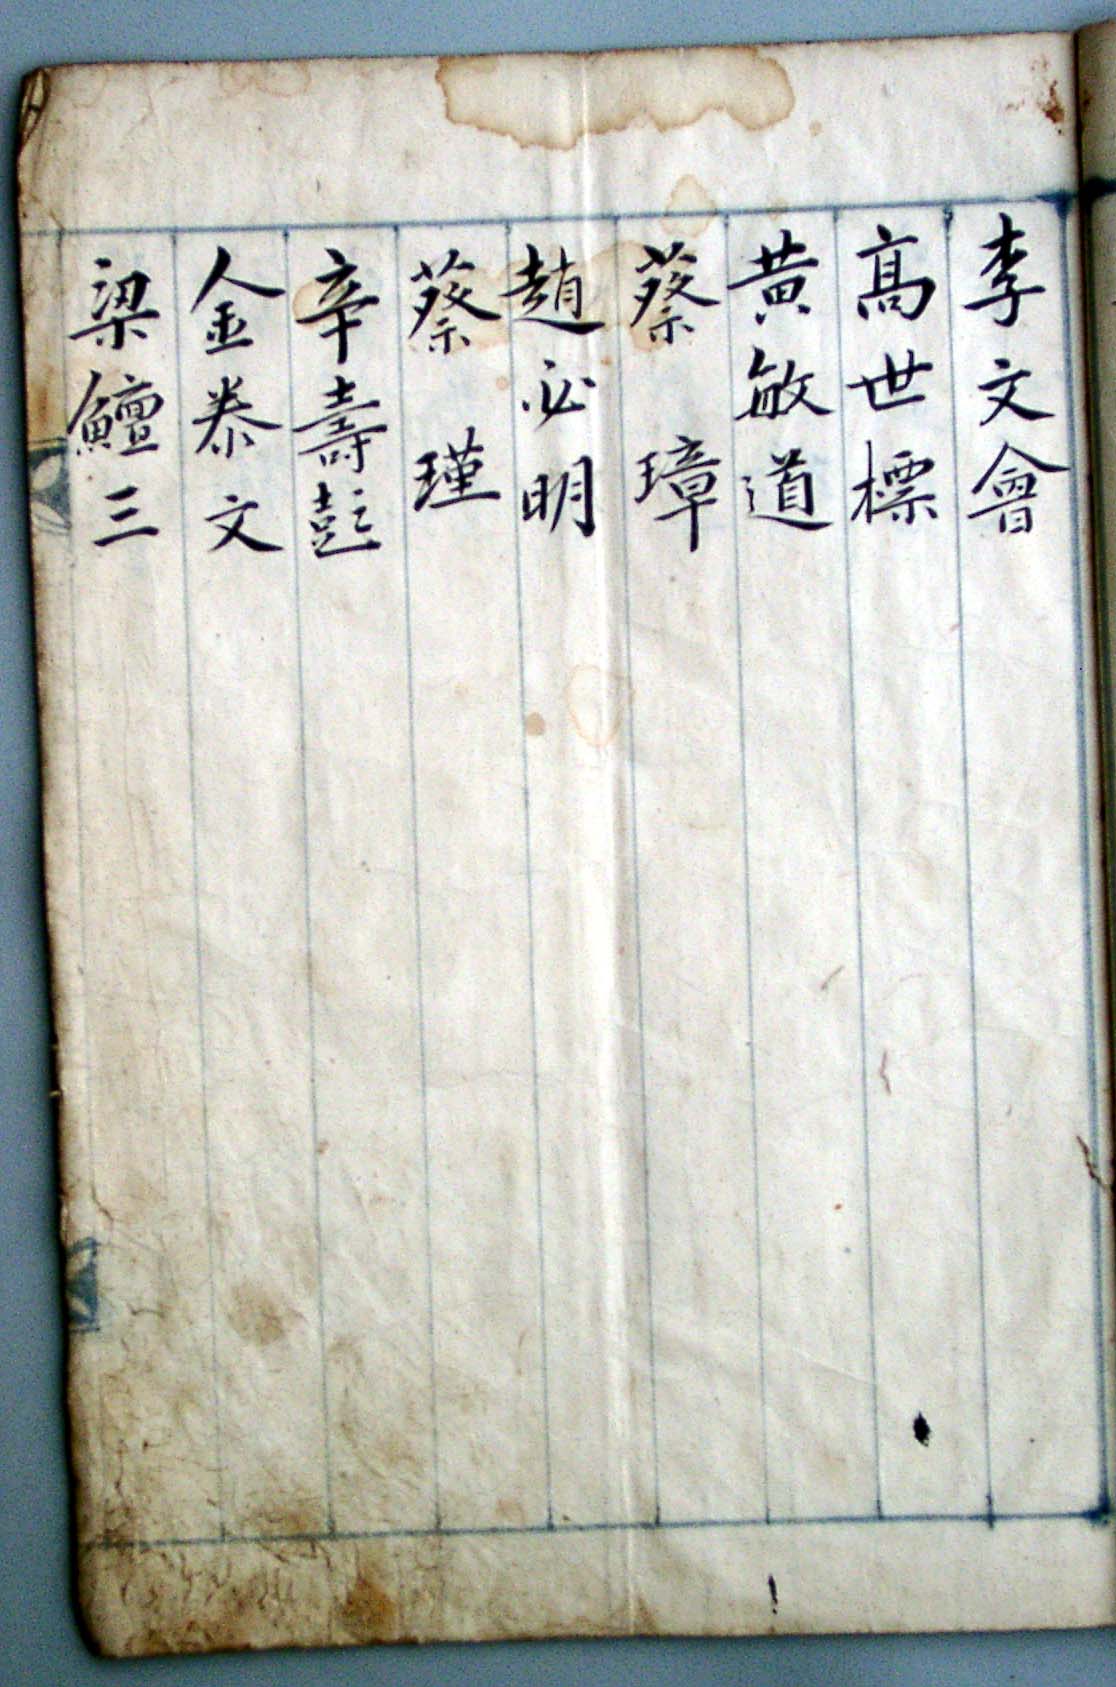 李文會
高世標
黃敏道
蔡璋
趙必明
蔡瑾
辛壽彭
金泰文
梁鱣三